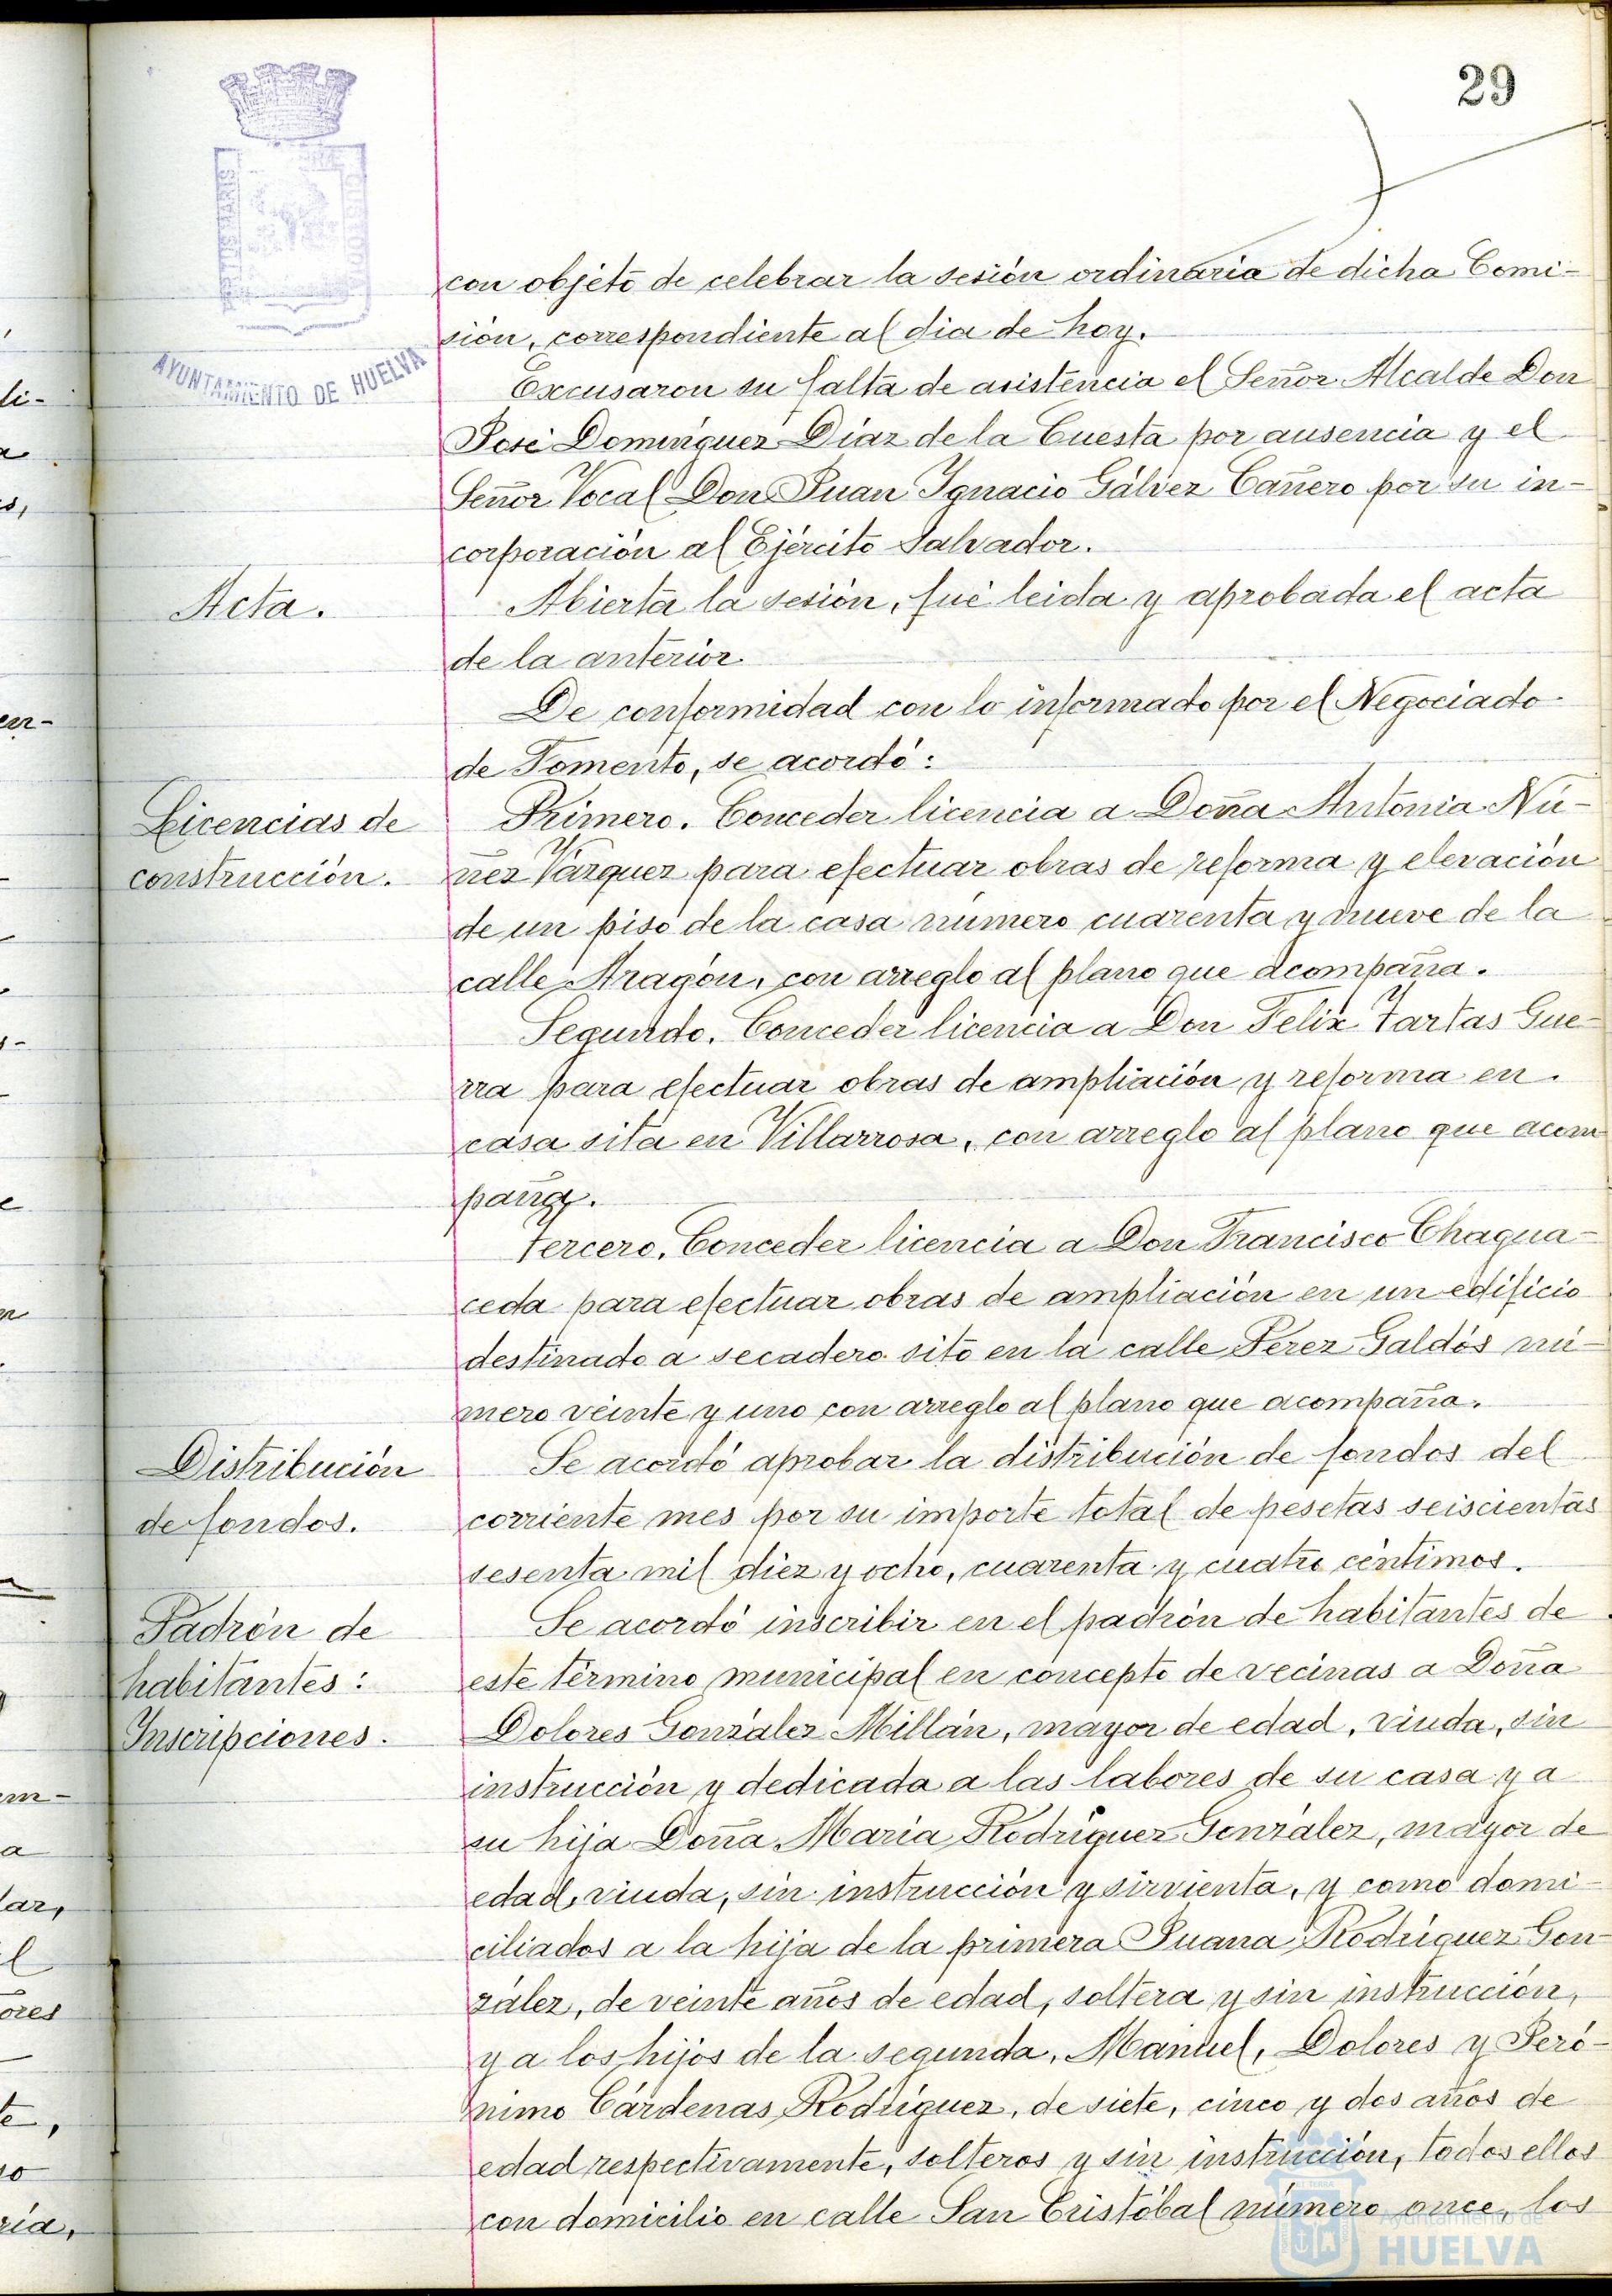 29
AYUNTAMIENTO DE HUELVA
con objeto de celebrar la sesión ordinaria de dicha Comi-
sión, correspondiente al dia de hoy.
Excusaron su falta de asistencia el Señor Alcalde Don
José Domínguez Díaz de la Cuesta por ausencia y el
Señor Vocal Don Juan Ignacio Gálvez Cañero por su in-
corporación al Ejército Salvador.
Acta.
Abierta la sesión, fué leida y aprobada el acta
de la anterior.
De conformidad con lo informado por el Negociado
de Fomento, se acordó:
Licencias de
construcción.
Primero. Conceder licencia a Doña Antonia Nú-
ñez Vázquez para efectuar obras de reforma y elevación
de un piso de la casa número cuarenta y nueve de la
calle Aragón, con arreglo al plano que acompaña.
Segundo. Conceder licencia a Don Felix Tartas Gue-
rra para efectuar obras de ampliación y reforma en
casa sita en Villarrosa, con arreglo al plano que acom
paña.
Tercero. Conceder licencia a Don Francisco Chagua-
ceda para efectuar obras de ampliación en un edificio
destinado a secadero sito en la calle Perez Galdós nú-
mero veinte y uno con arreglo al plano que acompaña.
Distribución
de fondos.
Se acordó aprobar la distribución de fondos del
corriente mes por su importe total de pesetas seiscientas
sesenta mil diez y ocho, cuarenta y cuatro céntimos.
Padrón de
habitantes:
Inscripciones.
Se acordó inscribir en el padrón de habitantes de
este término municipal en concepto de vecinas a Doña
Dolores González Millán, mayor de edad, viuda, sin
instrucción y dedicada a las labores de su casa y a
su hija Doña María Rodríguez González, mayor de
edad, viuda, sin instrucción y sirvienta, y como domi-
ciliados a la hija de la primera Juana Rodríguez Gon-
zález, de veinte años de edad, soltera y sin instrucción,
y a los hijos de la segunda, Manuel, Dolores y Jeró-
nimo Cárdenas Rodríguez, de siete, cinco y dos años de
edad respectivamente, solteros y sin instrucción, todos ellos
con domicilio en calle San Cristóbal número once, los
Ayuntamiento de
HUELVA